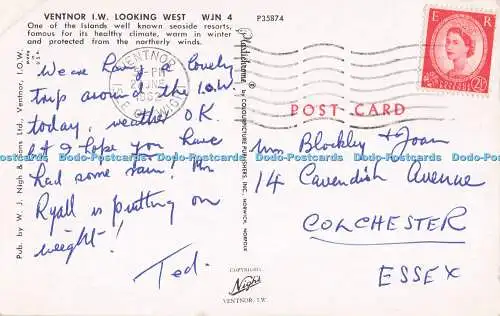 VENTNOR I.W. LOOKING WEST WJN 4
One of the Islands well known seaside resorts,
famous for its healthy climate, warm in winter
and protected from the northerly winds.
P35874
VENTNOR
ISLE OF WIGHT
Pub. by W. J. Nigh & Sons Ltd., Ventnor, I.O.W.
We are having a lovely
trip around the I.O.W.
today, weather OK.
& I hope you have
had some rain! Mr
Ryall is putting on
weight!
Ted.
Plastichrome ®
by COLOURPICTURE PUBLISHERS, INC.
NORWICH, NORFOLK
COPYRIGHT
Nigh
VENTNOR. I.W.
E R
2½D
POST CARD
Mrs Blockley & Joan
14 Cavendish Avenue
COLCHESTER
ESSEX
Dodo-Postcards Dodo-Postcards Dodo-Postcards Dodo-Postcards Dodo-Postcards